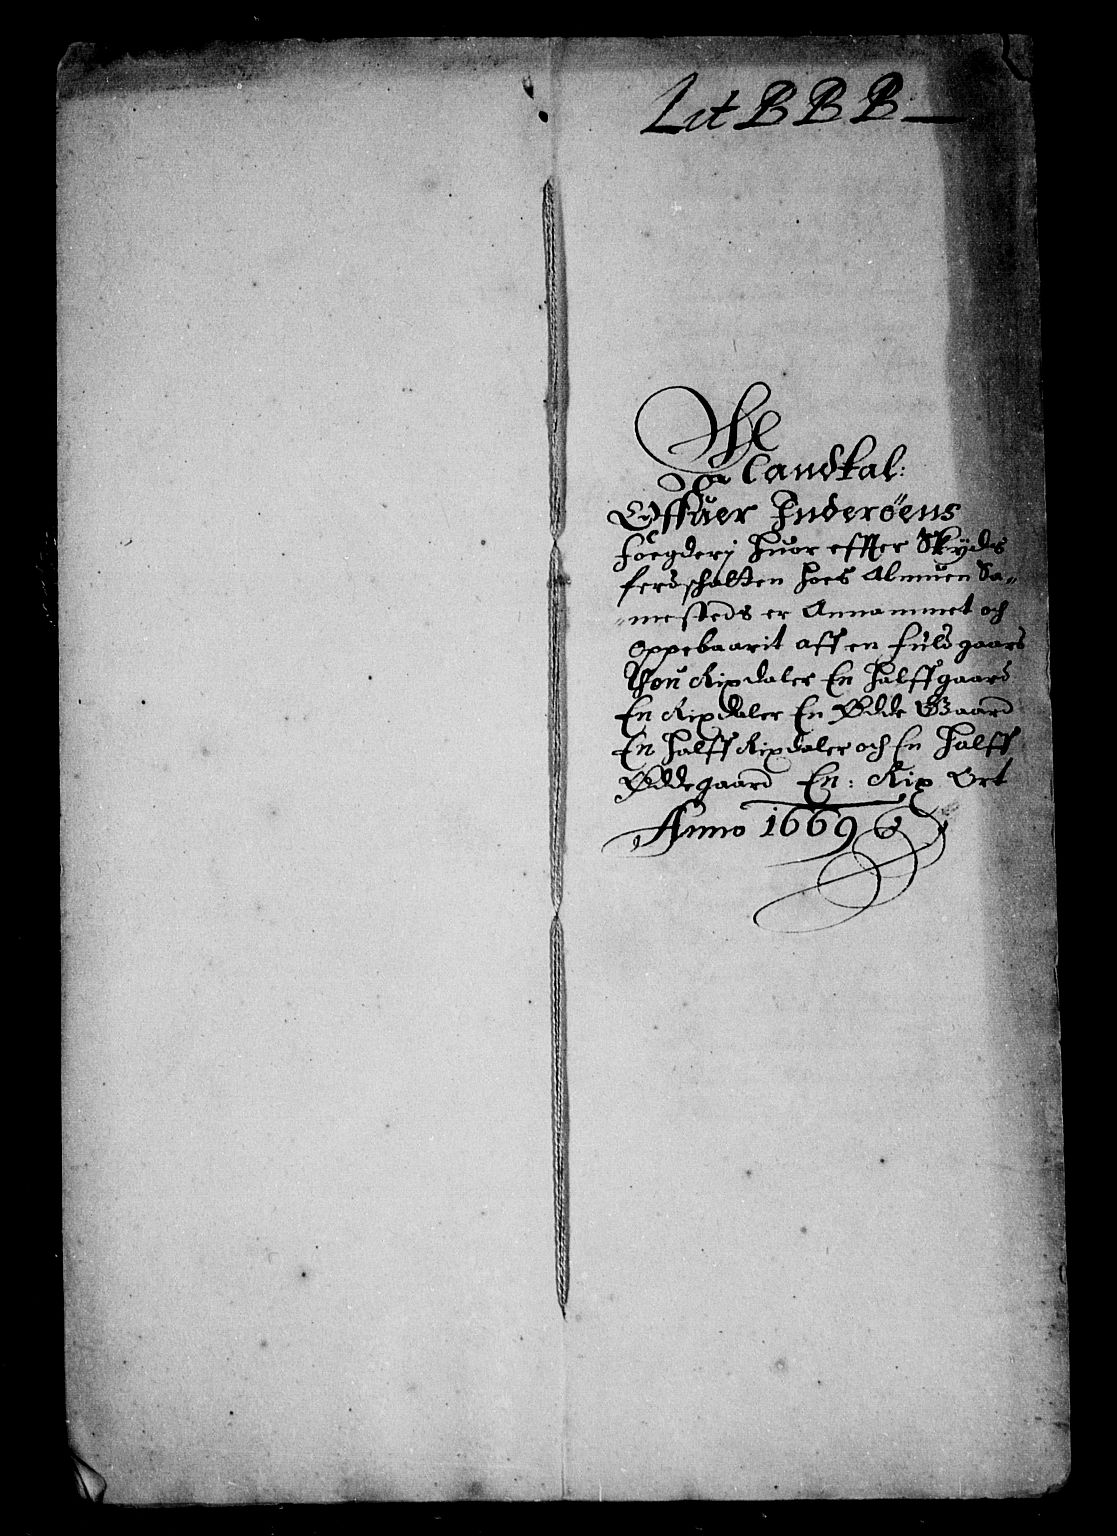 Lit BBB
Mandtal:
Offuer Inderøens
foegderj huor effter Skyds
ferdschatten hoes Almuen Sa-
-mesteds er Annammet och
Oppebaarit aff en fuld gaard
Thou Rixdaler En Halff gaard
En Rixdaler En Ødde Gaard
En Halff Rixdaler och En Halff
Øddegaard En: Rix Ort
Anno 1669